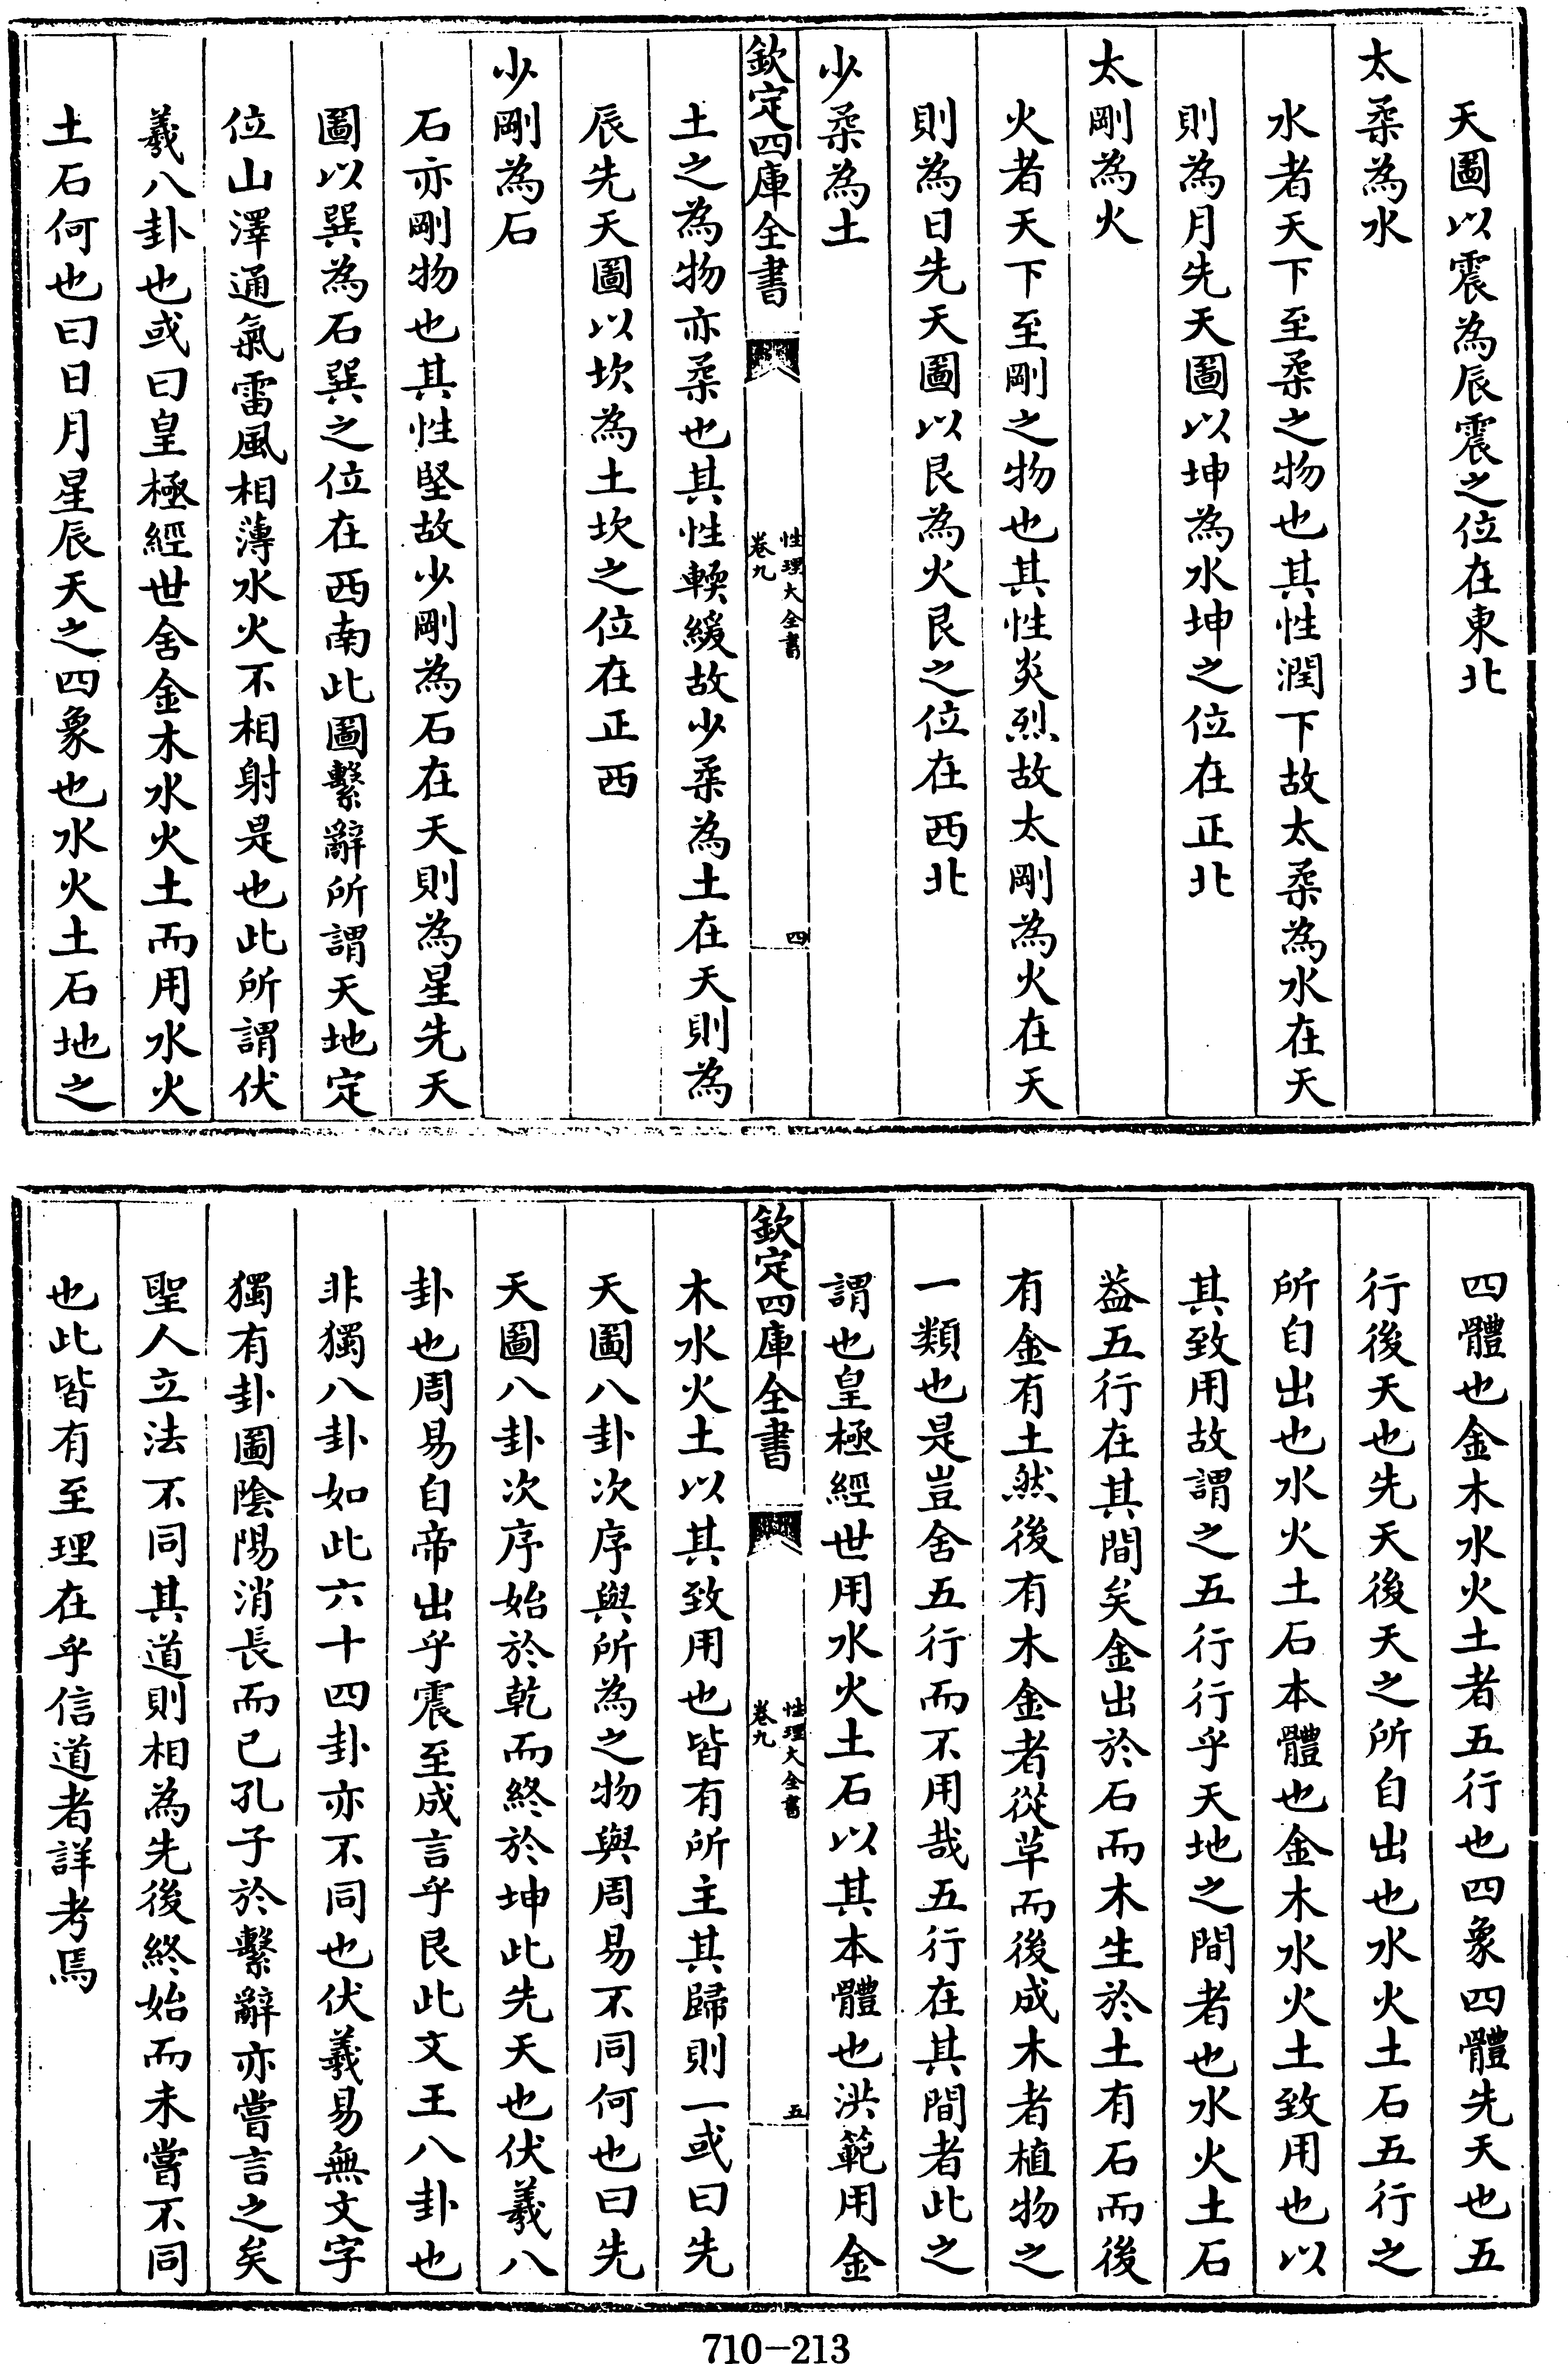 天圖以震為辰震之位在東北
太柔為水
水者天下至柔之物也其性潤下故太柔為水在天
則為月先天圖以坤為水坤之位在正北
太剛為火
火者天下至剛之物也其性炎烈故太剛為火在天
則為日先天圖以艮為火艮之位在西北
少柔為土
欽定四庫全書
性理大全書
卷九
四
土之為物亦柔也其性輭緩故少柔為土在天則為
辰先天圖以坎為土坎之位在正西
少剛為石
石亦剛物也其性堅故少剛為石在天則為星先天
圖以巽為石巽之位在西南此圖繫辭所謂天地定
位山澤通氣雷風相薄水火不相射是也此所謂伏
羲八卦也或曰皇極經世舍金木水火土而用水火
土石何也曰日月星辰天之四象也水火土石地之
四體也金木水火土者五行也四象四體先天也五
行後天也先天後天之所自出也水火土石五行之
所自出也水火土石本體也金木水火土致用也以
其致用故謂之五行行乎天地之間者也水火土石
葢五行在其間矣金出於石而木生於土有石而後
有金有土然後有木金者從草而後成木者植物之
一類也是豈舍五行而不用哉五行在其間者此之
謂也皇極經世用水火土石以其本體也洪範用金
欽定四庫全書
性理大全書
卷九
五
木水火土以其致用也皆有所主其歸則一或曰先
天圖八卦次序與所為之物與周易不同何也曰先
天圖八卦次序始於乾而終於坤此先天也伏羲八
卦也周易自帝出乎震至成言乎艮此文王八卦也
非獨八卦如此六十四卦亦不同也伏羲易無文字
獨有卦圖陰陽消長而已孔子於繫辭亦嘗言之矣
聖人立法不同其道則相為先後終始而未嘗不同
也此皆有至理在乎信道者詳考焉
710-213